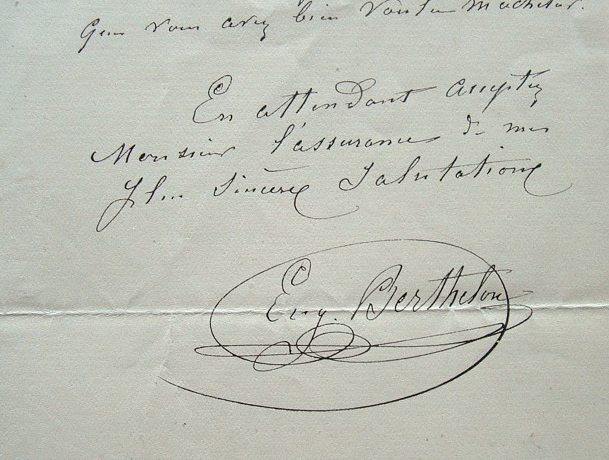 que vous avez bien voulu m'acheter.
En attendant acceptez
Monsieur l'assurance de mes
plus sincères salutations
Eug. Berthelon